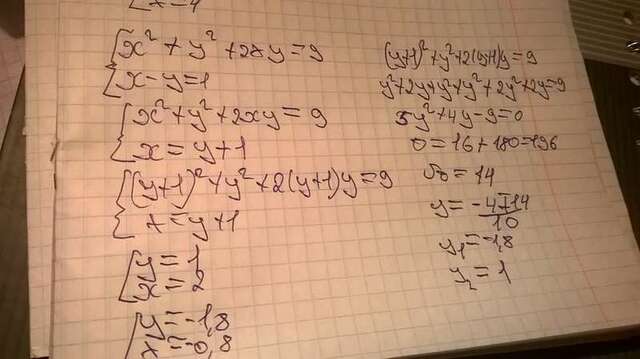 x = 4
x² + y² + 2xy = 9
x - y = 1
x² + y² + 2xy = 9
x = y + 1
(y+1)² + y² + 2(y+1)y = 9
x = y + 1
y = 1
x = 2
y = -1,8
x = -0,8
(y+1)² + y² + 2(y+1)y = 9
y² + 2y + y² + y² + 2y² + 2y = 9
5y² + 4y - 9 = 0
D = 16 + 180 = 196
√D = 14
y = -4 ∓ 14
10
y₁ = -1,8
y₂ = 1